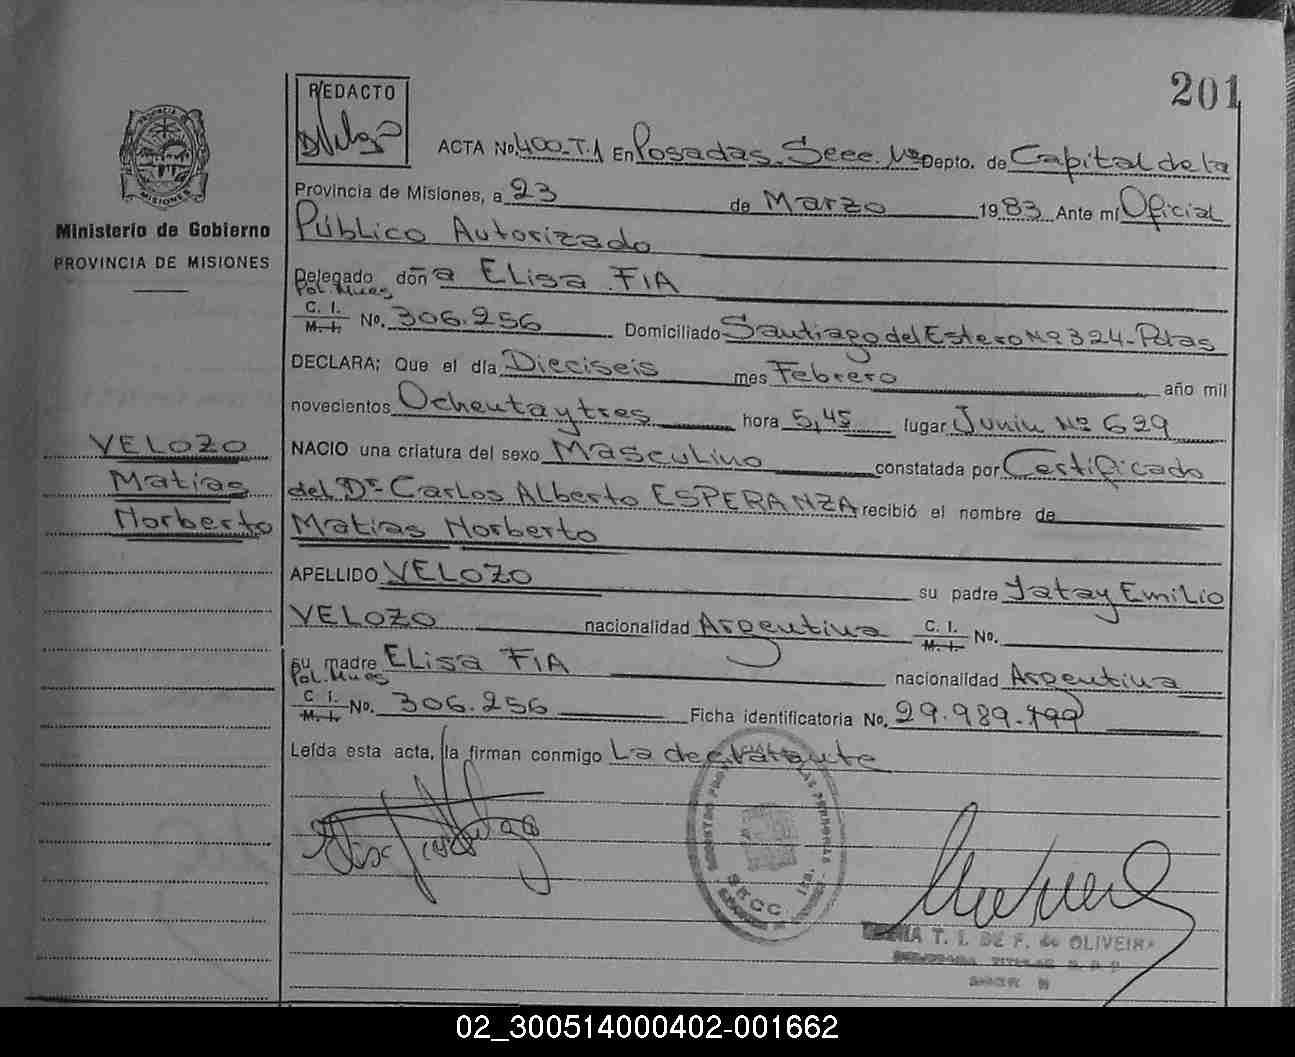 201
REDACTO
ACTA No. 400-T.1 En Posadas. Secc. 1ª Depto. de Capital de la
Provincia de Misiones, a 23 de Marzo 1983 Ante mí Oficial
Público Autorizado
Delegado doña Elisa FIA
Pol. Mnes
C. I.
M. I. No. 306.256 Domiciliado Santiago del Estero Nº 324-Pdas
DECLARA; Que el día Dieciseis mes Febrero año mil
novecientos Ochenta y tres hora 5,45 lugar Junin Nº 629
NACIO una criatura del sexo Masculino constatada por Certificado
del Dr. Carlos Alberto ESPERANZA recibió el nombre de
Matias Norberto
APELLIDO VELOZO su padre Yatay Emilio
VELOZO nacionalidad Argentina C. I.
M. I. No.
su madre Elisa FIA nacionalidad Argentina
Pol. Mnes
C. I.
M. I. No. 306.256 Ficha identificatoria No. 29.989.199
Leída esta acta, la firman conmigo La declarante
PROVINCIA DE
MISIONES
Ministerio de Gobierno
PROVINCIA DE MISIONES
VELOZO
Matías
Norberto
SECC 1ra.
T. I. DE F. de OLIVEIRA
02_300514000402-001662